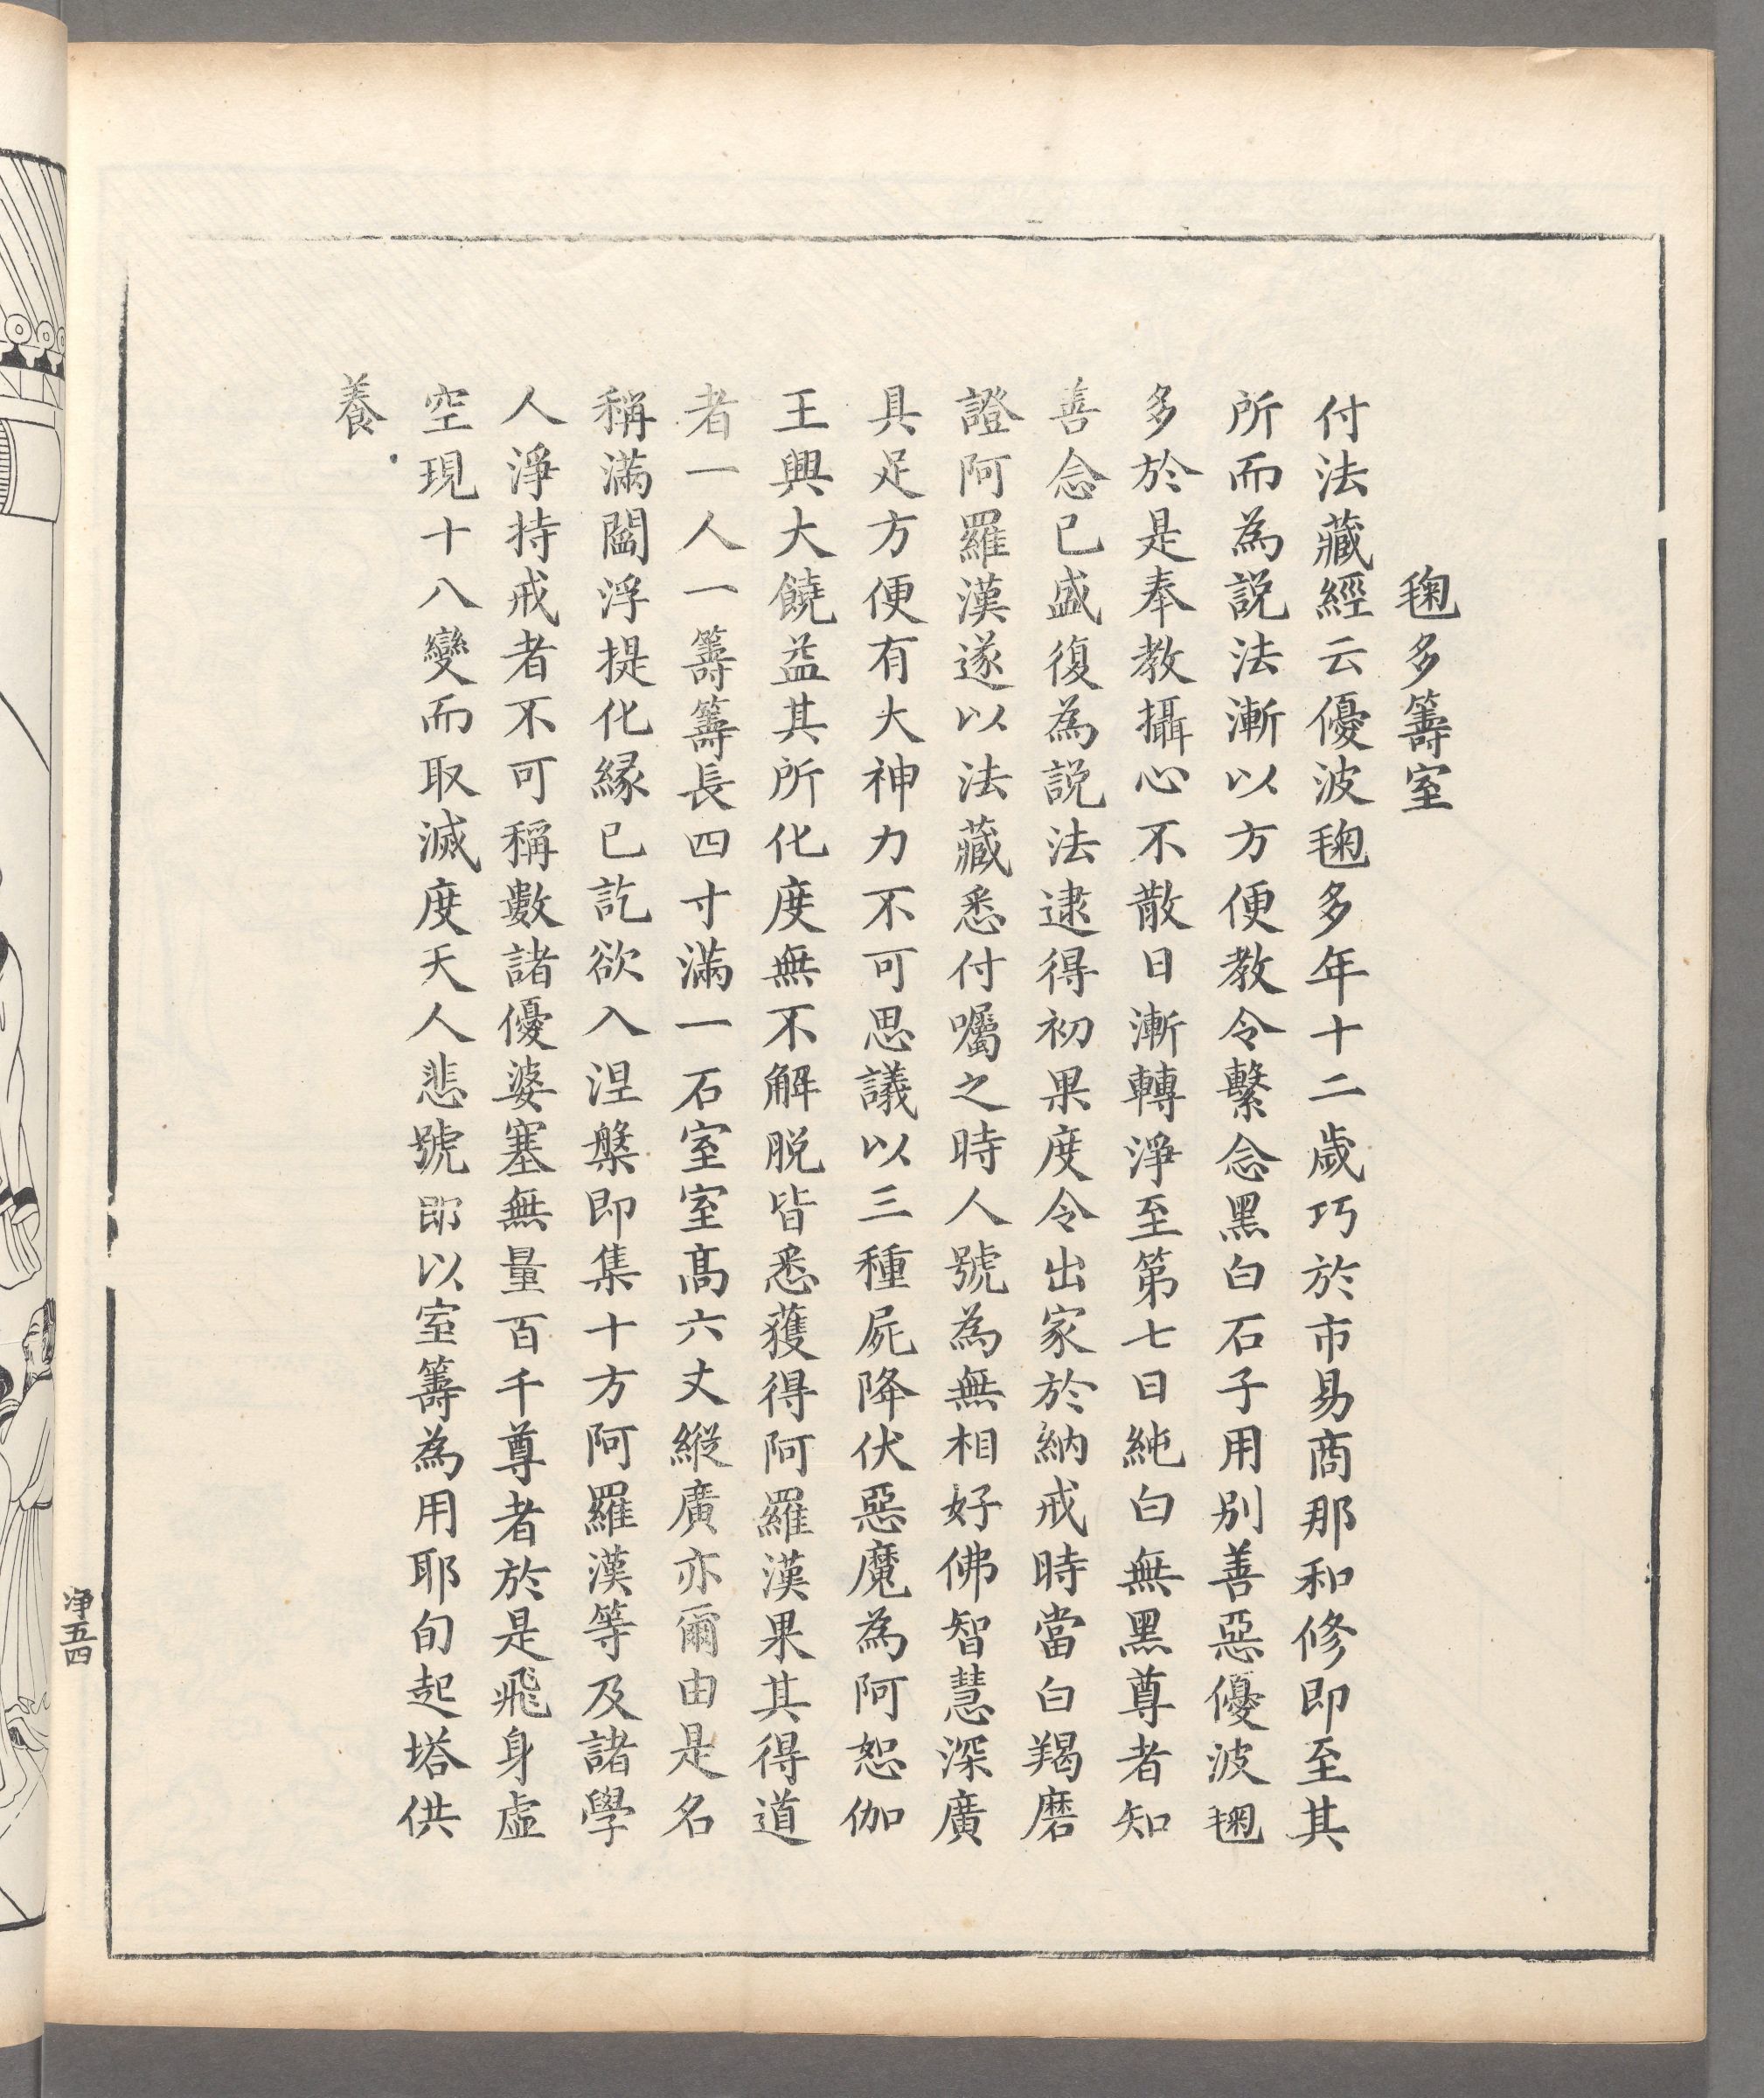 毱多籌室
付法藏經云優波毱多年十二歲巧於市易商那和修即至其
所而為説法漸以方便教令繫念黑白石子用别善惡優波毱
多於是奉教攝心不散日漸轉淨至第七日純白無黑尊者知
善念已盛復為説法逮得初果度令出家於納戒時當白羯磨
證阿羅漢遂以法藏悉付囑之時人號為無相好佛智慧深廣
具足方便有大神力不可思議以三種屍降伏惡魔為阿恕伽
王興大饒益其所化度無不解脱皆悉獲得阿羅漢果其得道
者一人一籌籌長四寸滿一石室室髙六丈縱廣亦爾由是名
稱滿閻浮提化緣已訖欲入涅槃即集十方阿羅漢等及諸學
人淨持戒者不可稱數諸優婆塞無量百千尊者於是飛身虛
空現十八變而取滅度天人悲號即以室籌為用耶旬起塔供
養
净五四